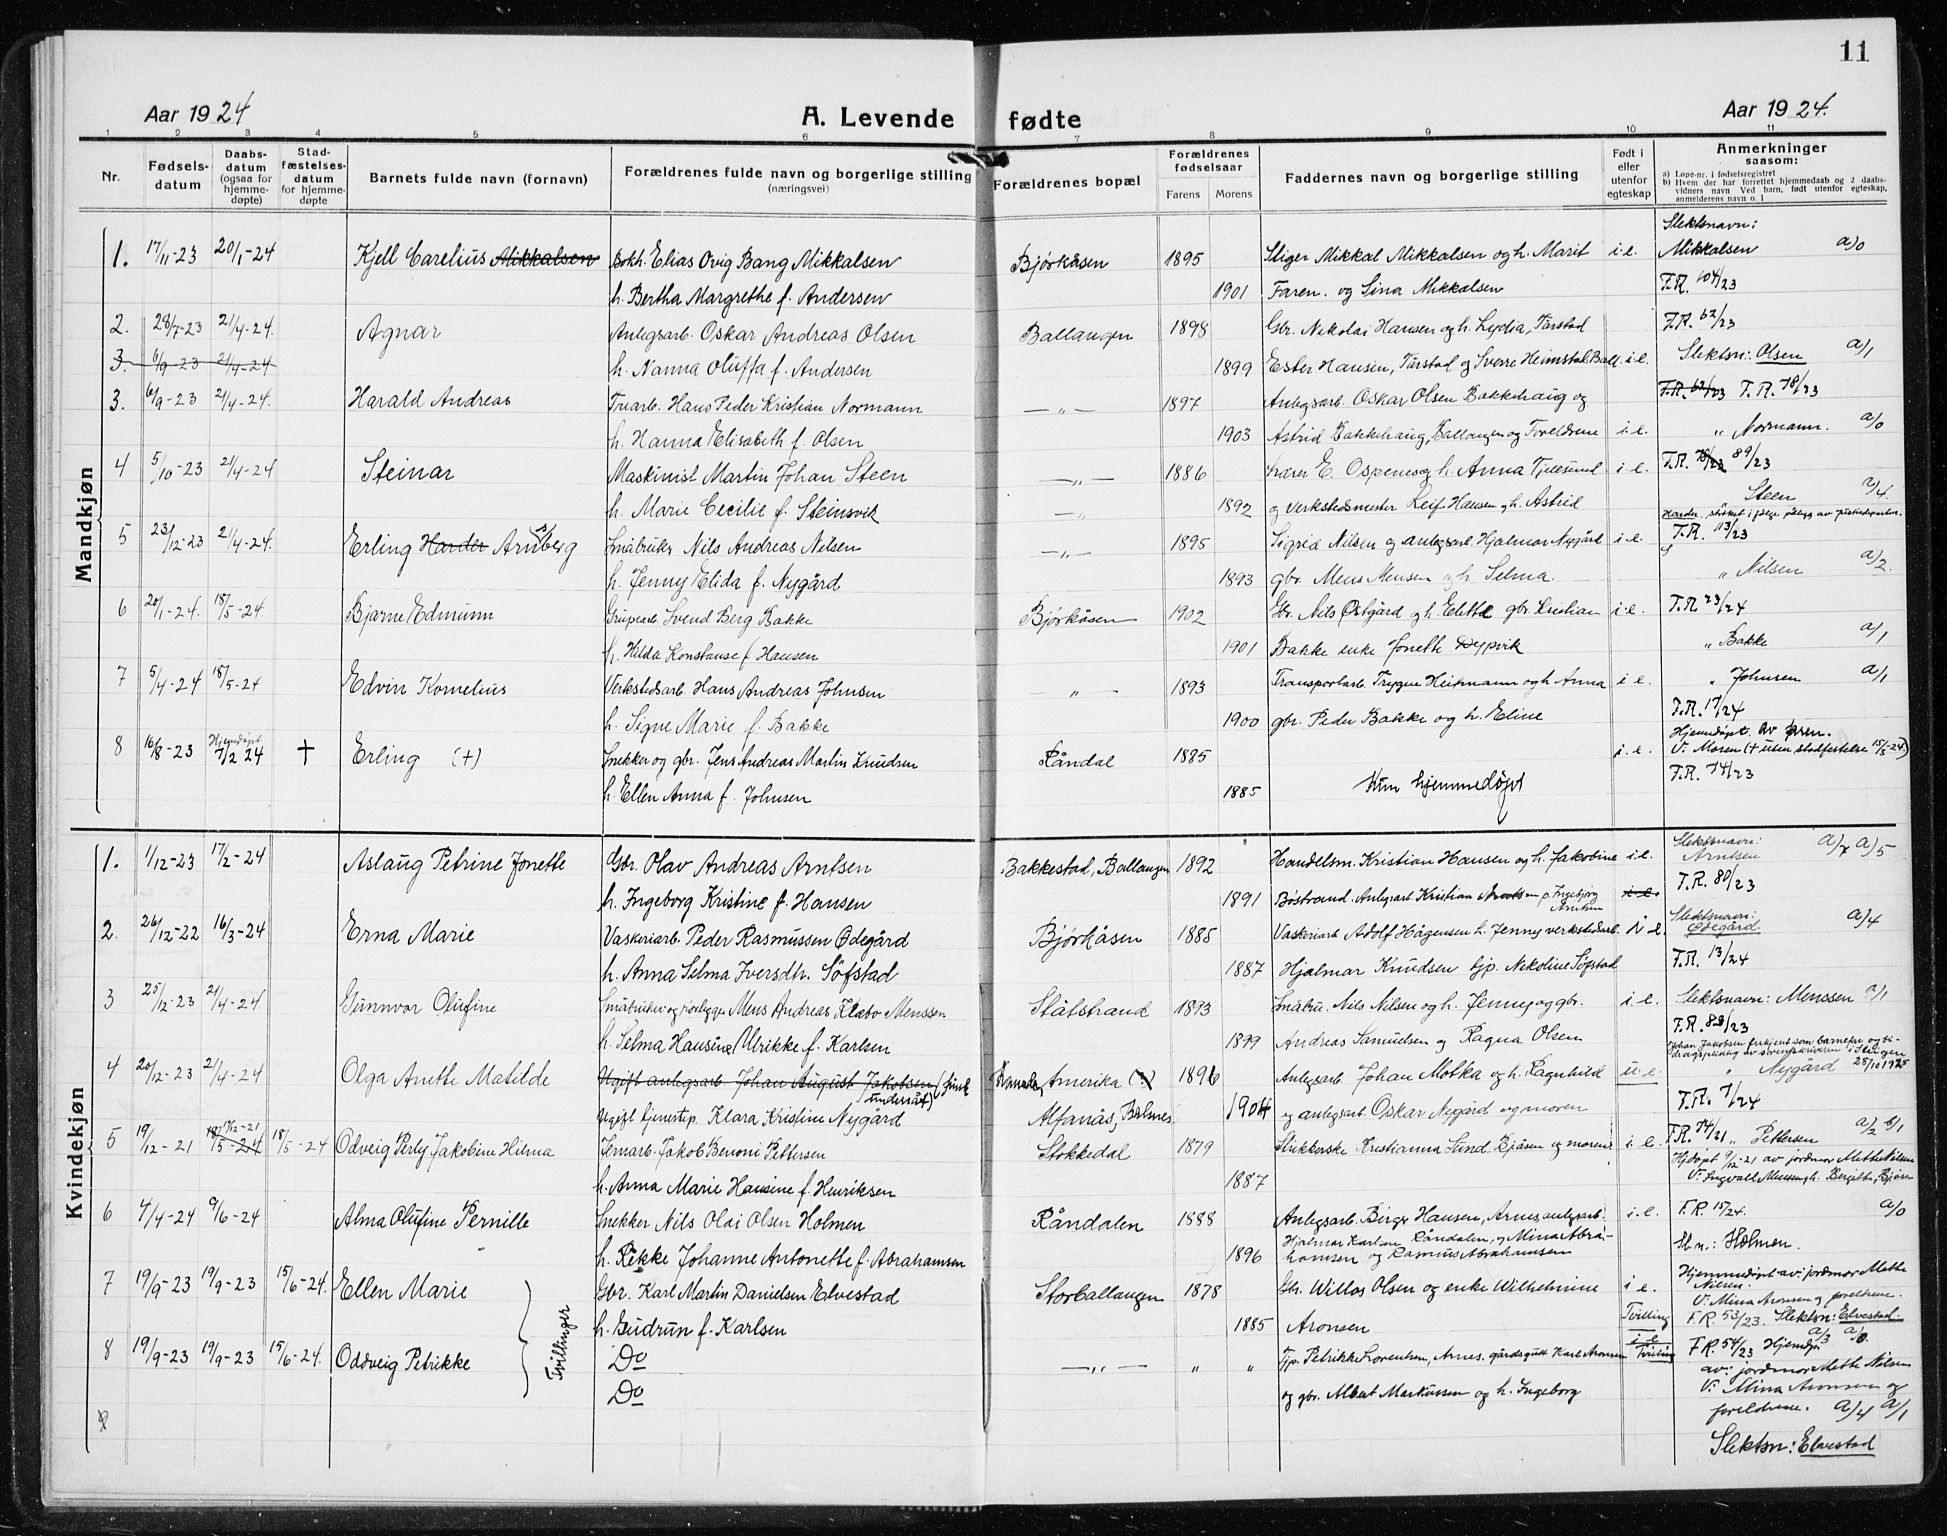 11
Aar 1924
A. Levende fødte
Aar 1924.
1 2 3 4 5 6 7 8 9 10 11
Nr.
Fødsels-datum
Daabs-datum (ogsaa for hjemme-døpte)
Stad-fæstelses-datum for hjemme-døpte
Barnets fulde navn (fornavn)
Forældrenes fulde navn og borgerlige stilling (næringsvei)
Forældrenes bopæl
Forældrenes fødselsaar
Farens Morens
Faddernes navn og borgerlige stilling
Født i eller utenfor egteskap
Anmerkninger saasom:
a) Løpe-nr. i fødselsregistret
b) Hvem der har forrettet hjemmedaab og 2 daabs-vidners navn Ved barn, født utenfor egteskap, anmelderens navn o. l
Mandkjøn
Slektsnavn:
1. 17/11-23 20/1-24 Kjell Carelius Mikkalsen Bokh. Elias Ovig Bang Mikkalsen Bjørkåsen 1895 Stiger Mikkal Mikkalsen og h. Marit i.e. Mikkalsen a/0
h. Bertha Margrethe f. Andersen 1901 Faren. og Sina Mikkalsen F.R. 104/23
2. 28/7-23 21/4-24. Agnar Anlegsarb. Oskar Andreas Olsen Ballangen 1898 Gbr. Nikolai Hansen og h. Lydia, Tårstad F.R. 62/23
3. 6/9-23 21/4-24 h. Nanna Oluffa f. Andersen 1899 Ester Hansen, Tårstad og Sverre Heimstal Ball. i.e. Slektsn: Olsen a/1
3. 6/9-23 21/4-24. Harald Andreas Trearb. Hans Peder Kristian Normann —„— 1897 Anlegsarb. Oskar Olsen Bakkehaug og F.R. 62/23 F.R. 78/23
h. Hanna Elisabeth f. Olsen 1903 Astrid Bakkehaug, Ballangen og Foreldrene i.e. „ Normann. a/0
4 5/10-23 21/4-24 Steinar Maskinist Martin Johan Steen —„— 1886 Lærer E. Ospenes og h. Anna Tjelesund i.e. F.R. 78/23 89/23
h. Marie Cecilie f. Steinsvik 1892 og verkstedsmester Leif Hansen og h. Astrid „ Steen a/4.
Harder strøket i følge pålegg av justisdeparten.
5 23/12-23 21/4-24. Erling Harder Arnberg Småbruker Nils Andreas Nilsen —„— 1895 Sigrid Nilsen og anlegsarb. Hjalmar Nygård i.e. F.R. 113/23
h. Jenny Elida f. Nygård 1893 gbr. Mens Mensen og h. Selma. „ Nilsen a/2.
6 20/1-24. 18/5-24 Bjarne Edmunn Grupearb. Svend Berg Bakke Bjørkåsen 1902 Gbr. Nils Østgård og h. Elette gbr. Kristian i.e. F.R. 23/24
h. Hilda Konstanse f. Hansen 1901 Bakke enke Jonette Dypvik „ Bakke a/1
7 5/4-24 18/5-24 Edvin Kornelius Verkstedsarb. Hans Andreas Johnsen —„— 1893 Transportarb. Trygve Heitmann og h. Anna i.e. „ Johnsen a/1
h. Signe Marie f. Bakke 1900 gbr. Peder Bakke og h. Eline F.R. 17/24
8 16/8-23 Hjemdøpt 7/2 24 † Erling (†) Snekker og gbr. Jens Andreas Martin Knudsen Råndal 1885 i.e. Hjemdøpt av faren. V: Moren († uten stadfestelse 15/5-24)
h. Ellen Anna f. Johnsen 1885 Kun hjemmedøpt F.R. 74/23
Kvindekjøn
1. 1/12-23 17/2-24 Aslaug Petrine Jonette Gbr. Olav Andreas Arntsen Bakkestad, Ballangen 1892 Handelsm. Kristian Hansen og h. Jakobine i.e. Slektsnavn: Arntsen a/7 a/5
h. Ingeborg Kristine f. Hansen 1891 Bøstrand. Anlegsarb. Kristian Arntsen p. Ingebjørg Arntsen i.e. F.R. 80/23
2. 26/12-22 16/3-24 Erna Marie Vaskeriarb. Peder Rasmussen Ødegård Bjørkåsen 1885 Vaskeriarb Adolf Hågensen h. Jenny verkstedarb. i e. Slektsnavn: Ödegård. a/4
h. Anna Selma Iversdh. Söfstad 1887 Hjalmar Knudsen tjp. Nikoline Søfstad F.R. 13/24
3 25/12-23 21/4-24 Gunnvor Olufine Småbruker og rørlegger Mens Andreas Klæbo Menssen Ståtstrand 1893 Småbr. Nils Nilsen og h. Jenny og gbr. i.e. Slektsnavn: Menssen a/1
h. Selma Hansine Ulrikke f. Karlsen 1899 Andreas Samuelsen og Ragna Olsen F.R. 83/23
4 20/12-23 21/4-24 Olga Anette Matilde Ugift anlegsarb. Johan August Jakobsen (finsk undersåt) Kanada, Amerika 1896 Anlegsarb. Johan Motka og h. Ragnhild u.e. Johan Jakobsen erkjent som barnefar og bidragspliktig av sorenskriveren i Steigen 28/10 1925 „ Nygård
Ugift tjenestep. Klara Kristine Nygård Alfanäs, Balnes 1904 og anlegsarb Oskar Nygård og moren F.R. 7/24
5 19/12-21 9/12-21 18/5-24 18/5-24 Odveig Perly Jakobine Hilma Jernarb. Jakob Benoni Pettersen Stokkedal 1879 Strikkerske Kristianna Lund Bjåsen og moren i.e. F.R. 74/21 „ Pettersen a/2 b/1
h. Anna Marie Hansine f. Henriksen 1887 Hjdøpt 9/12-21 av jordmor Mette Nilsen V: Ingvall Mensen og h. Bergitte, Bjåsen
6 4/4-24 9/6-24 Alma Olufine Pernille Snekker Nils Olai Olsen Holmen Råndalen 1888 Anlegsarb. Birger Hansen, Arnes, anlegsarb. i.e. F.R. 15/24. a/0
h. Rikke Johanne Antonette f. Abrahamsen 1896 Hjalmar Karlsen Råndalen, og Mina Abrahamsen og Rasmus Abrahamsen Sl.n.: Holmen.
7 19/9-23 19/9-23 15/6-24. Ellen Marie Gbr. Karl Martin Danielsen Elvestad Storballangen 1878 Gbr. Willas Olsen og enke Wilhelmine i e. Hjemmedøpt av: jordmor Mette Nilsen. V: Mina Aronsen og foreldrene.
h. Gudrun f. Karlsen 1885 Aronsen Tvilling F.R. 53/23. Slektsn: Elvestad. a/3 a/0.
Tvillinger
8 19/9-23 19/9-23 15/6-24. Oddveig Petrikke Do —„— „ „ Tjp. Petrikke Lorentsen, Arnes, gårdsgutt Karl Aronsen i e Tvilling F.R 54/23 Hjemdøpt av: jordmor Mette Nilsen
Do og gbr. Albert Markussen og h. Ingeborg V: Mina Aronsen og foreldrene. a/4 a/1
Slektsn: Elvestad